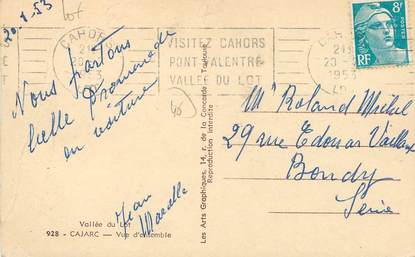 20.1.53
Lot
CAHORS
21
20
53
VISITEZ CAHORS
PONT VALENTRÉ
VALLÉE DU LOT
8F
POSTES
RF
21H
20-
1953
Nous partons
belle promenade
en voiture
Jean
Mr Roland Michel
29 rue Edouar Vaillant
Bondy
Seine
Les Arts Graphiques, 14, r. de la Concorde - Toulouse
Reproduction interdite
Vallée du Lot
928 - CAJARC — Vue d'ensemble